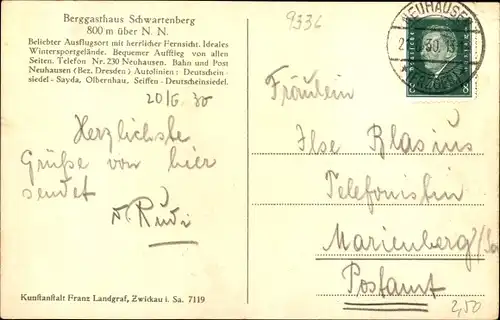 Berggasthaus Schwartenberg
800 m über N. N.
Beliebter Ausflugsort mit herrlicher Fernsicht. Ideales
Wintersportgelände. Bequemer Aufstieg von allen
Seiten. Telefon Nr. 230 Neuhausen. Bahn und Post
Neuhausen (Bez. Dresden) Autolinien: Deutschein-
siedel-Sayda, Olbernhau, Seiffen-Deutscheinsiedel.
20/6. 30
Herzlichste
Grüße von hier
sendet
Rudi
Kunstanstalt Franz Landgraf, Zwickau i. Sa. 7119
9336
NEUHAUSEN
30
8 8
Fräulein
Ilse Blasius
Telefonistin
Marienberg/Sa
Postamt
2,50